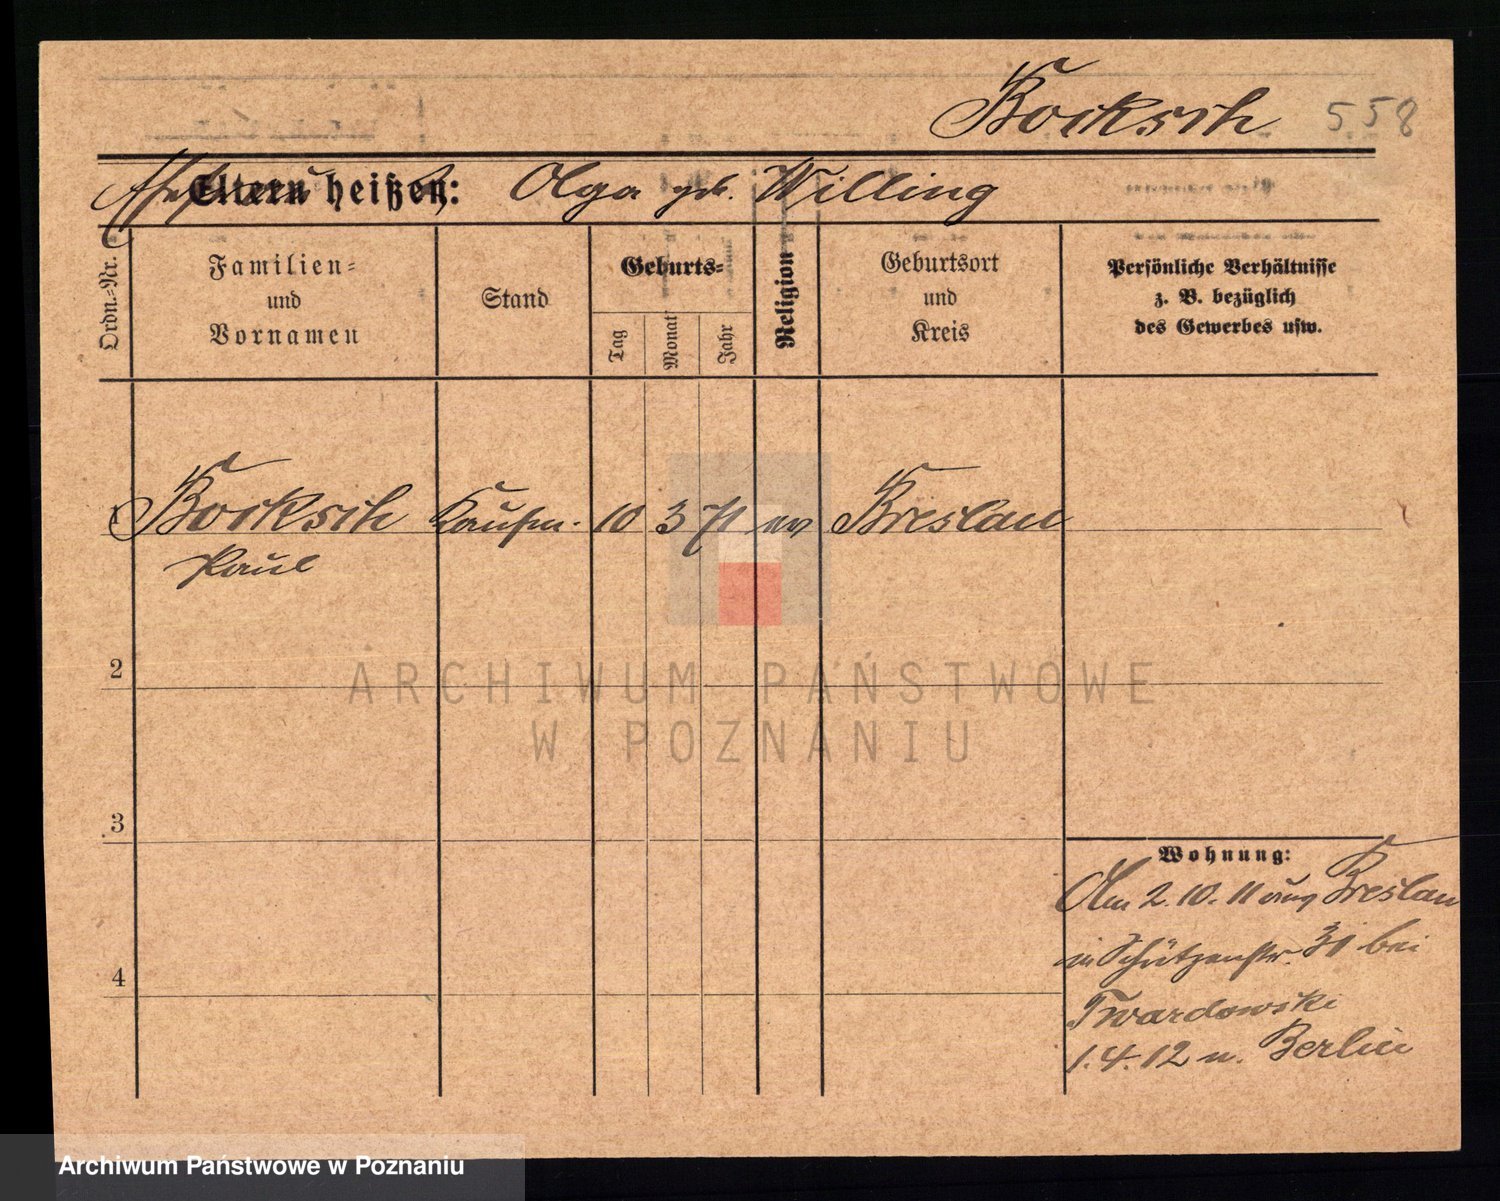 Bocksch 558
Ehefrau Eltern heißen: Olga geb. Willing
Ordn.-Nr.
Familien-
und
Vornamen
Stand
Geburts-
Tag
Monat
Jahr
Religion
Geburtsort
und
Kreis
Persönliche Verhältnisse
z. B. bezüglich
des Gewerbes usw.
1 Bocksch Kaufm. 10 3 71 ev Breslau
Paul
2
3
4
Wohnung:
Am 2.10.11 aus Breslau
in Schützenstr. 31 bei
Twardowski
1.4.12 n. Berlin
ARCHIWUM PAŃSTWOWE
W POZNANIU
Archiwum Państwowe w Poznaniu